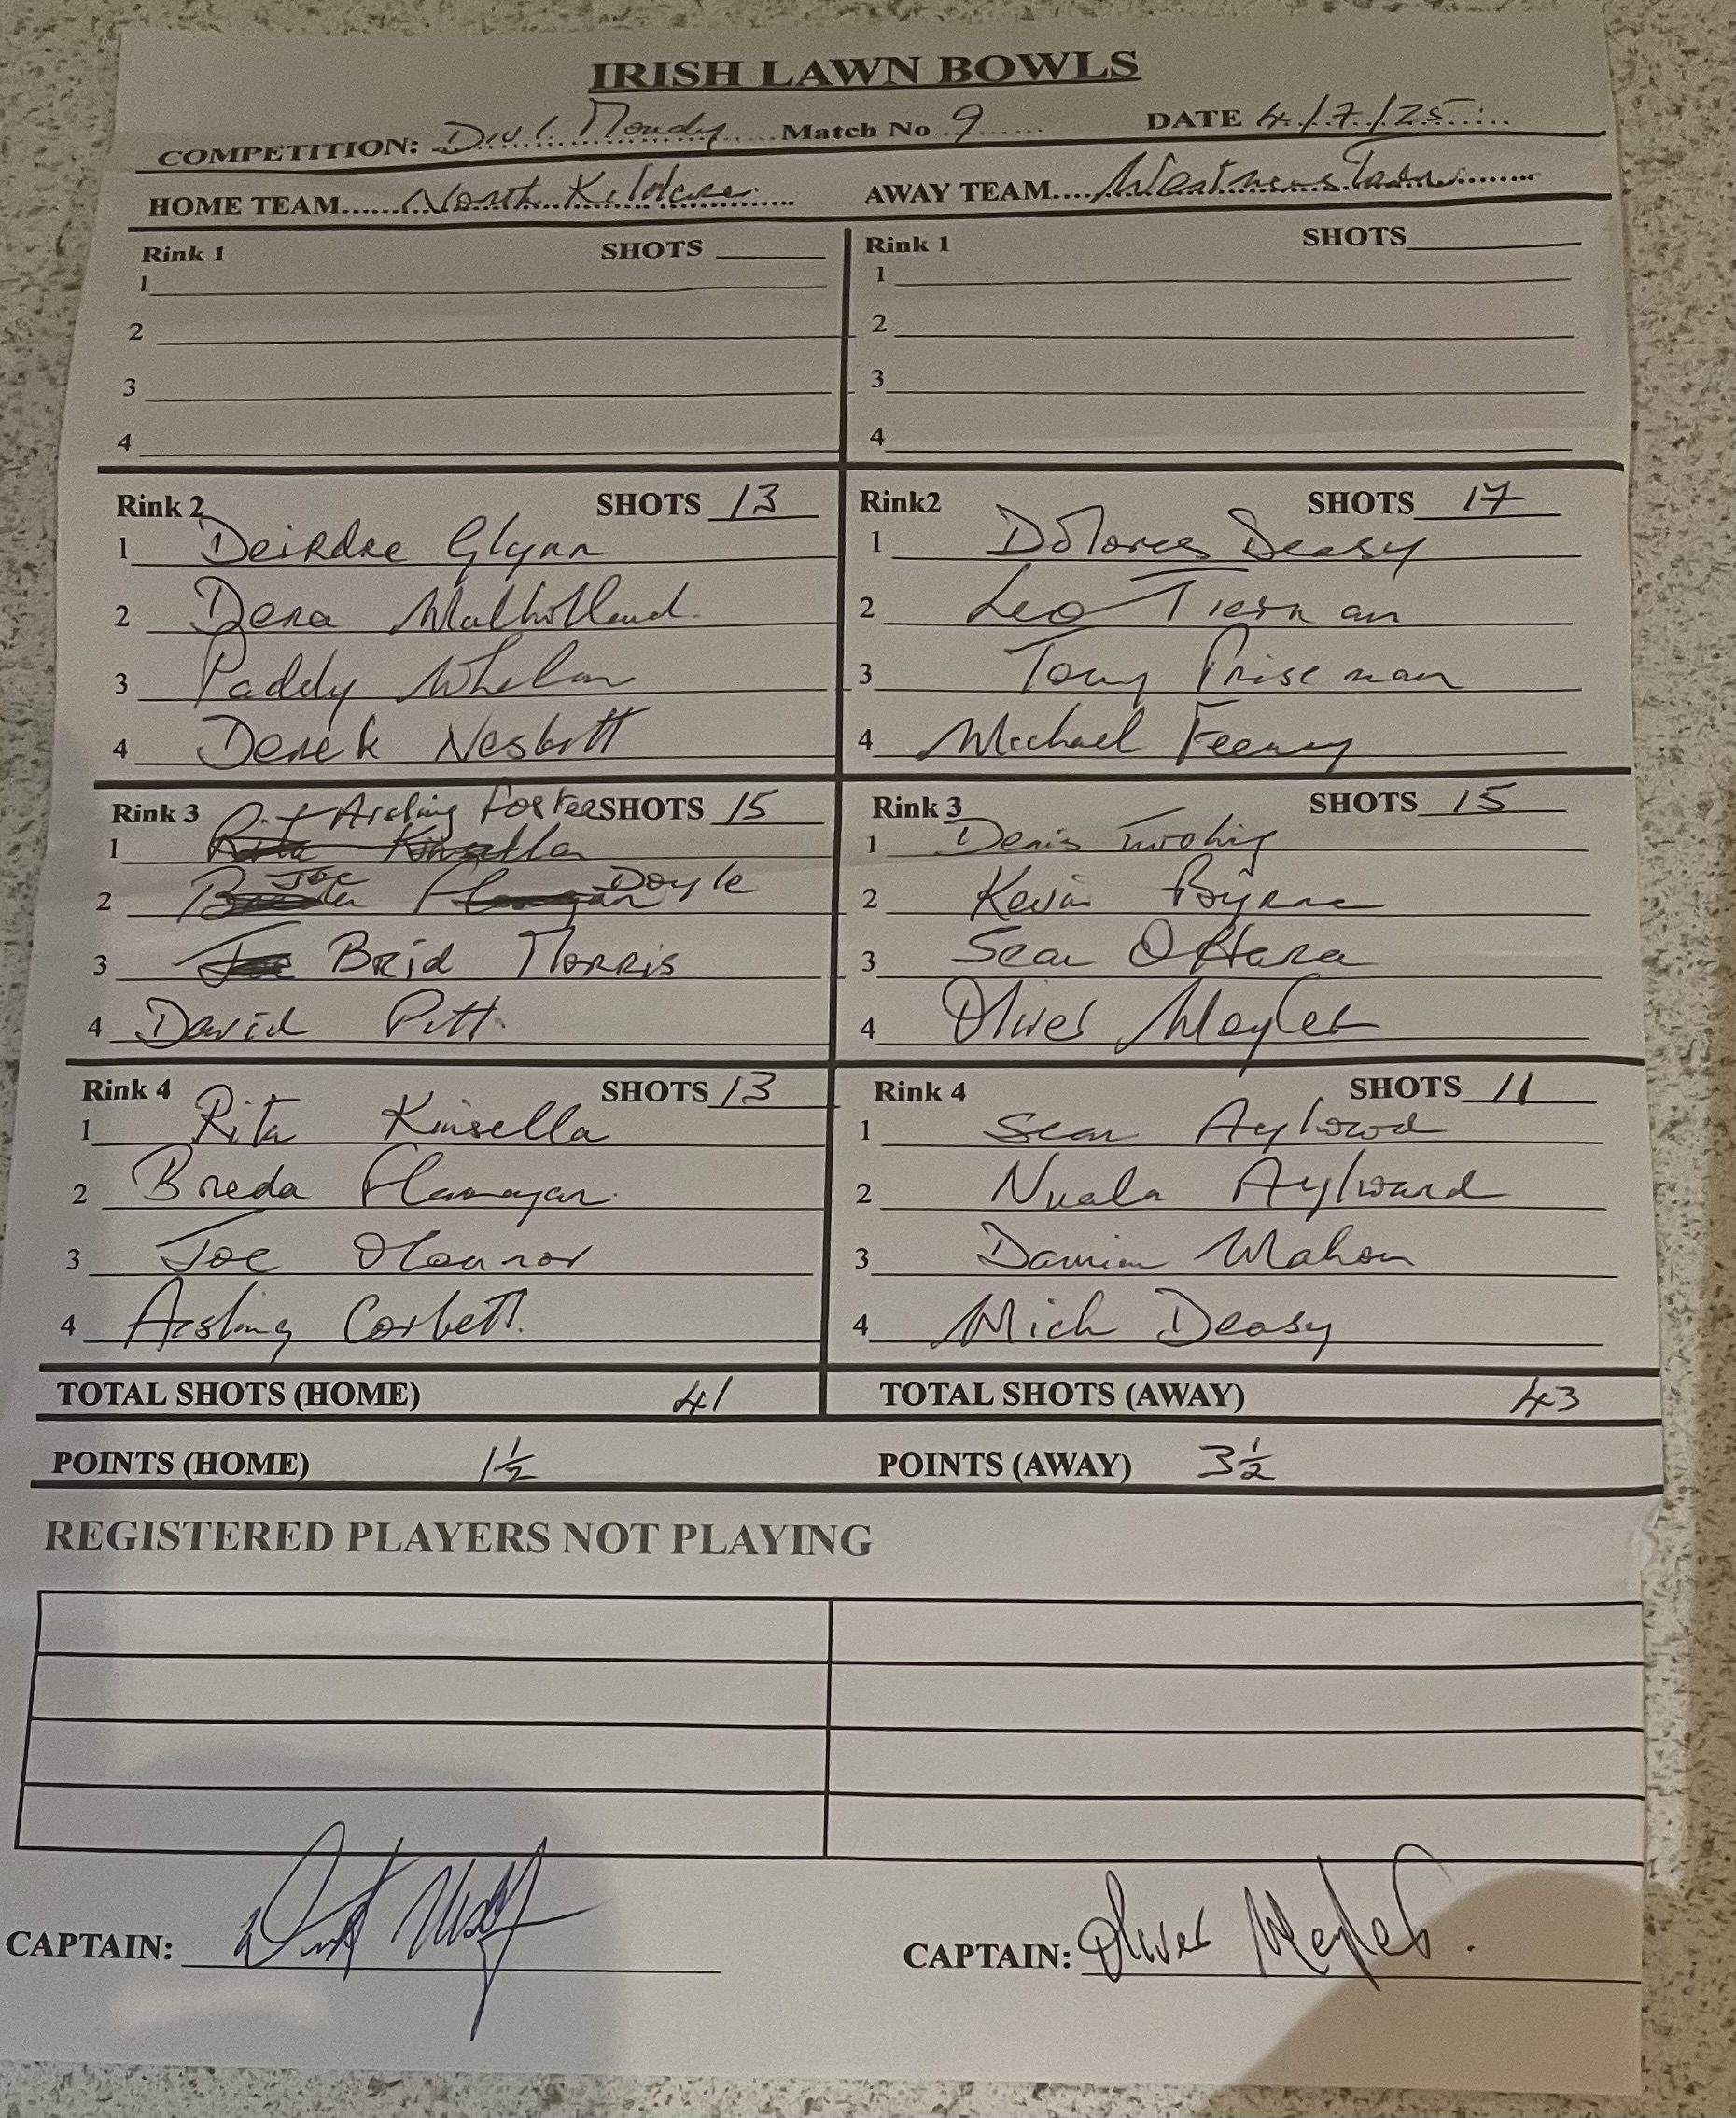 IRISH LAWN BOWLS
COMPETITION: Div 1. Monday Match No 9 DATE 4/7/25
HOME TEAM North Kildare AWAY TEAM Westmanstown
Rink 1 SHOTS
1
2
3
4
Rink 1 SHOTS
1
2
3
4
Rink 2 SHOTS 13
1 Deirdre Glynn
2 Dera Mulholland
3 Paddy Whelan
4 Derek Nesbitt
Rink2 SHOTS 17
1 Dolores Deasy
2 Leo Tiernan
3 Tony Priseman
4 Michael Feeney
Rink 3 Aisling Foster SHOTS 15
1 Rita Kinsella
2 Joe Doyle
3 Joe Brid Morris
4 David Pitt.
Rink 3 SHOTS 15
1 Denis Twohig
2 Kevin Byrne
3 Sean O Hara
4 Oliver Meyler
Rink 4 SHOTS 13
1 Rita Kinsella
2 Breda Flanagan
3 Joe O'Connor
4 Aisling Corbett.
Rink 4 SHOTS 11
1 Sean Aylwood
2 Nuala Aylward
3 Damian Mahon
4 Mick Deasy
TOTAL SHOTS (HOME) 41 TOTAL SHOTS (AWAY) 43
POINTS (HOME) 1½ POINTS (AWAY) 3½
REGISTERED PLAYERS NOT PLAYING
CAPTAIN: CAPTAIN: Oliver Meyler.